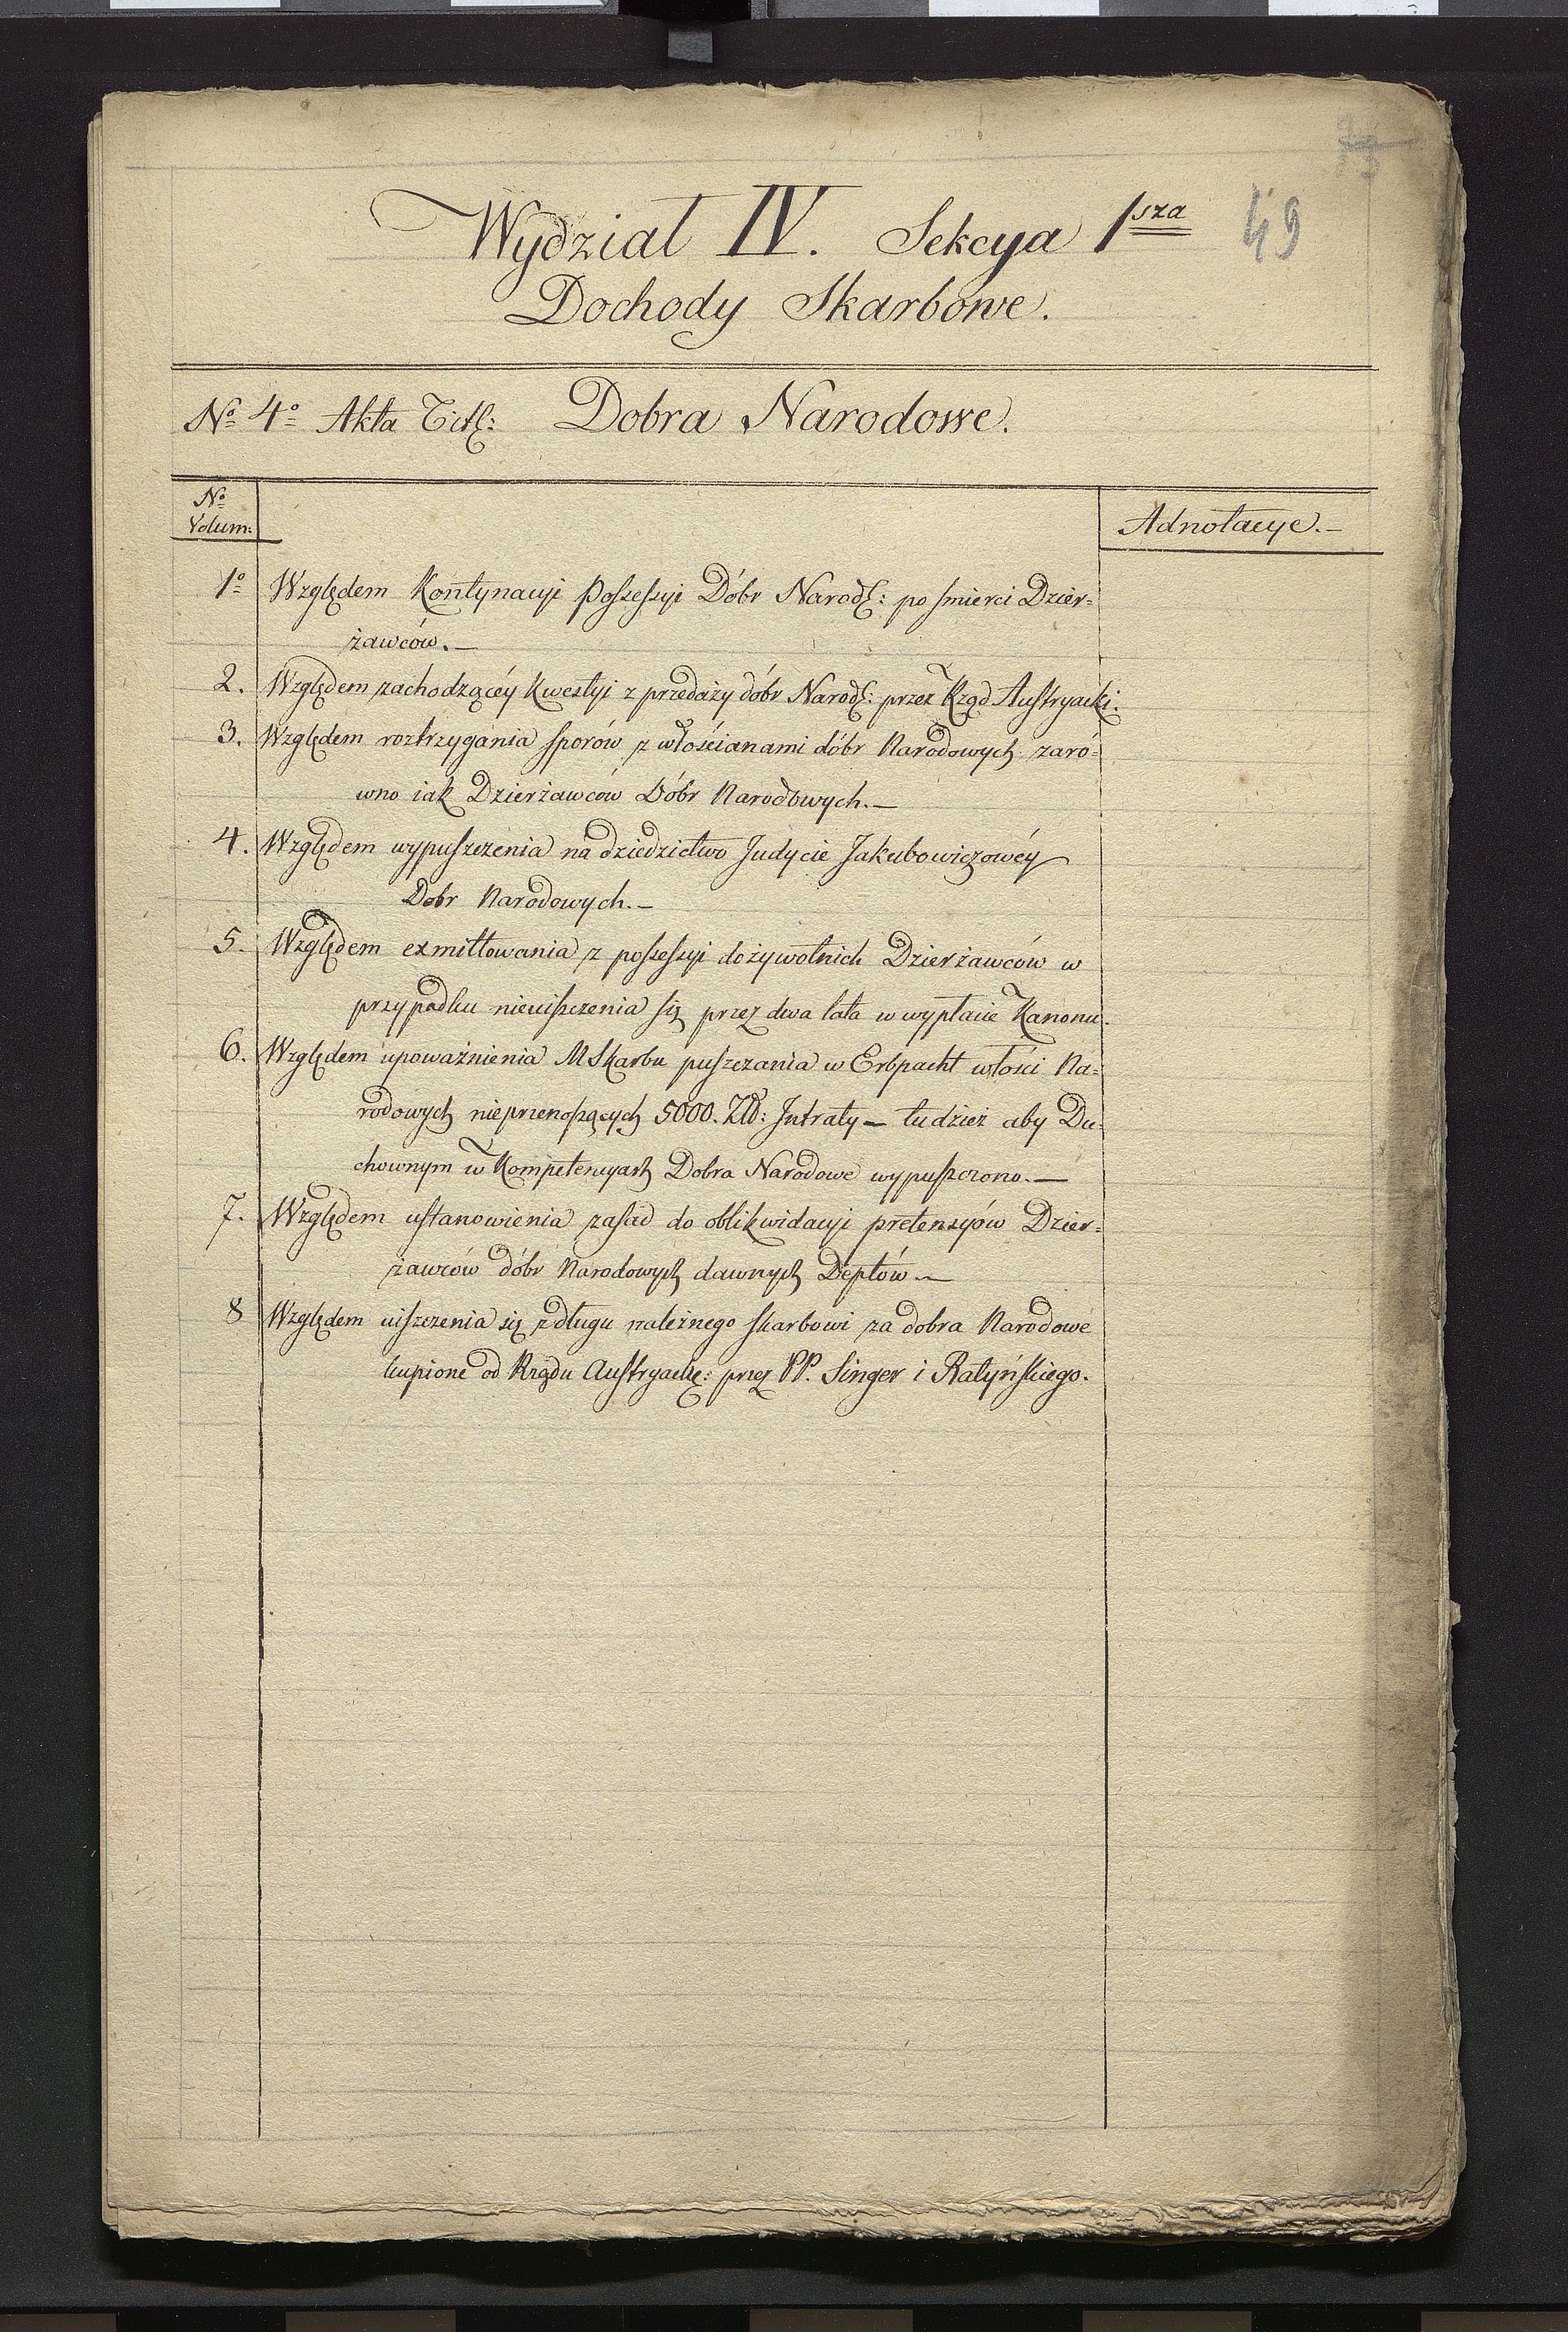 49
Wydział IV. Sekcya 1sza
Dochody Skarbowe.
No 4o Akta Titł: Dobra Narodowe.
No
Volum:
Adnotacye.—
1o Względem Kontynacyi Possessyi Dóbr Narod: po śmierci Dzier=
żawców.—
2. Względem zachodzącéy Kwestyi z przedaży dóbr Narod: przez Rząd Austryacki.
3. Względem roztrzygania sporów z włościanami dóbr Narodowych zaró=
wno iak Dzierżawców Dóbr Narodowych.—
4. Względem wypuszczenia na dziedzictwo Judycie Jakubowiczowéy
Dobr Narodowych.—
5. Względem exmittowania z possessyi dożywotnich Dzierżawców w
przypadku nieuiszczenia się przez dwa lata w wypłacie Kanonu.
6. Względem upoważnienia M Skarbu puszczania w Erbpacht włości Na=
rodowych nieprzenoszących 5000. Zł: Intraty — tudzież aby Du=
chownym w Kompetencyach Dobra Narodowe wypuszczono.—
7. Względem ustanowienia zasad do oblikwidacyi pretensyów Dzier=
żawców dóbr Narodowych dawnych Deptów.—
8 Względem uiszczenia się z długu należnego skarbowi za dobra Narodowe
kupione od Rządu Austryack: przez PP. Singer i Ratyńskiego.